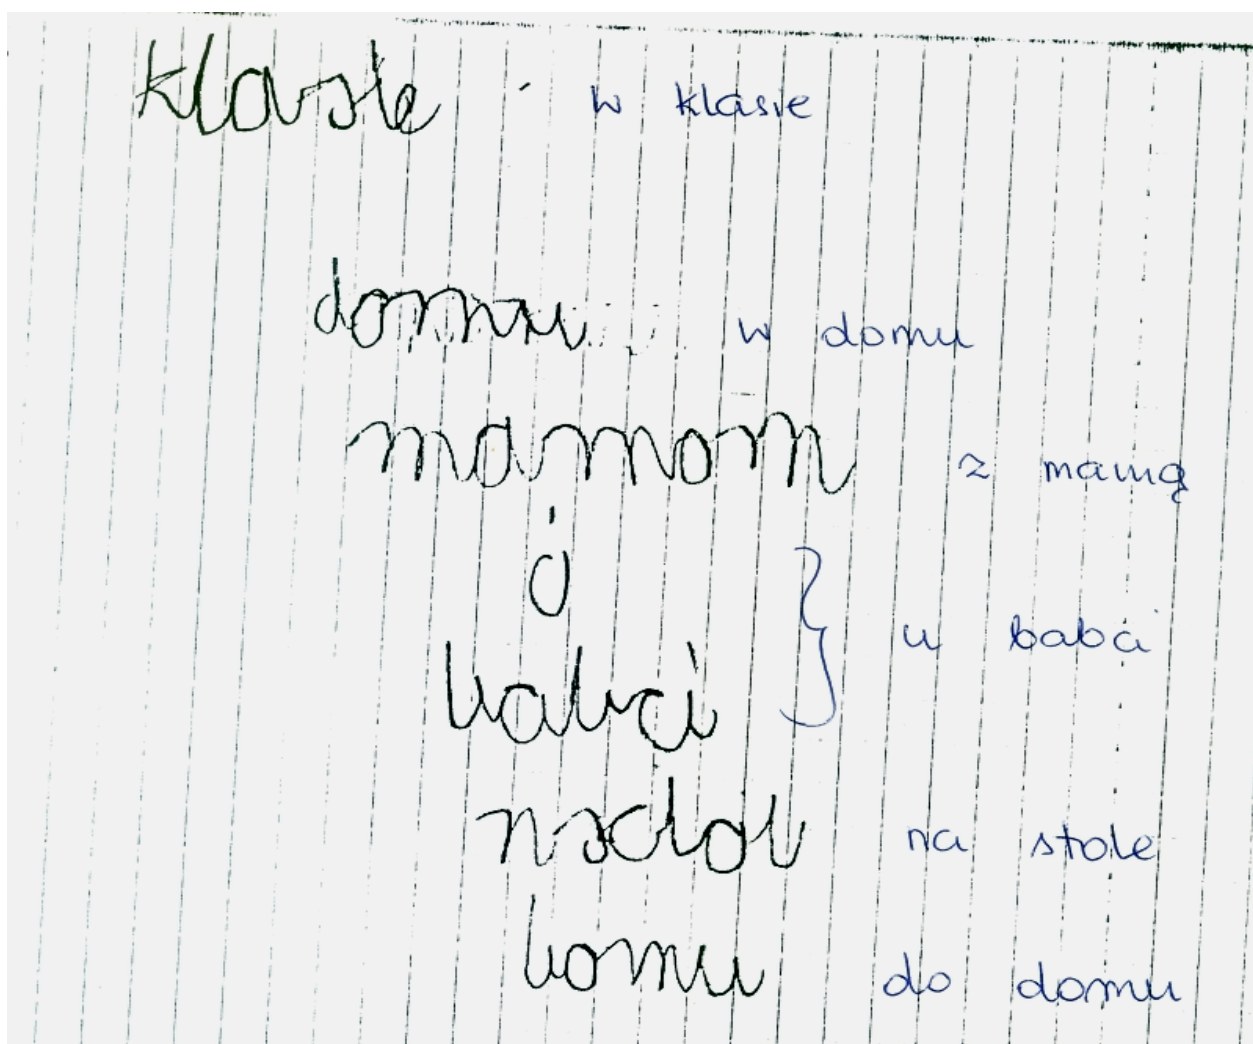 klasie - w klasie
domu w domu
mamom z mamą
ó
u babci
babci
na stole
bomu do domu